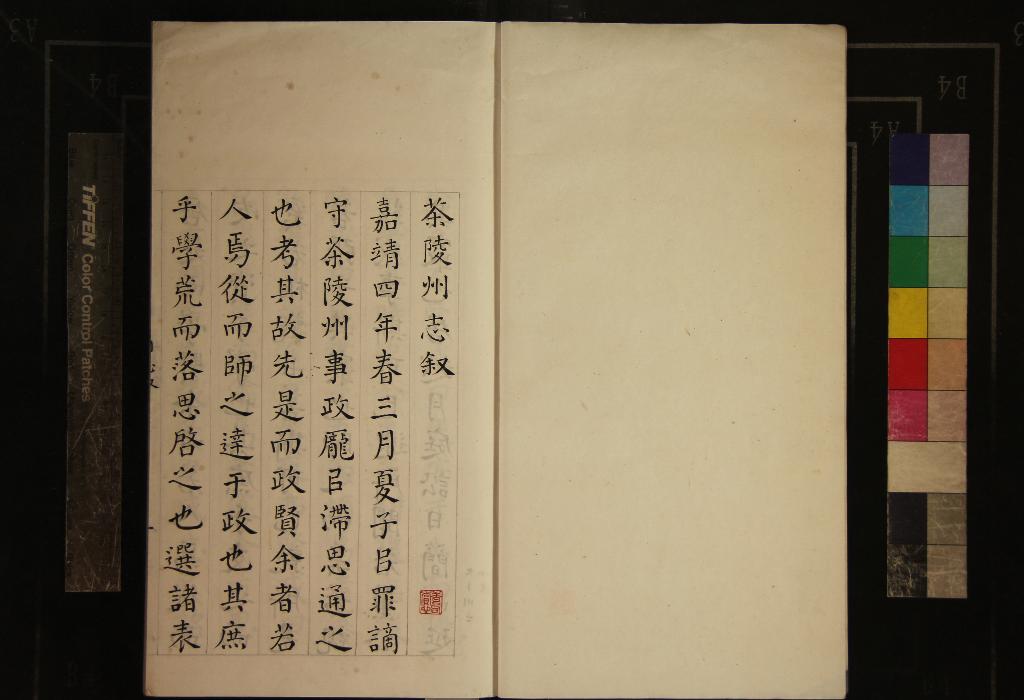 茶陵州志叙
嘉靖四年春三月夏子㠯罪謫
守茶陵州事政龎㠯滯思通之
也考其故先是而政賢余者若
人焉從而師之達于政也其庶
乎學荒而落思啓之也選諸表
TIFFEN Color Control Patches
B4
A4
B4
A3